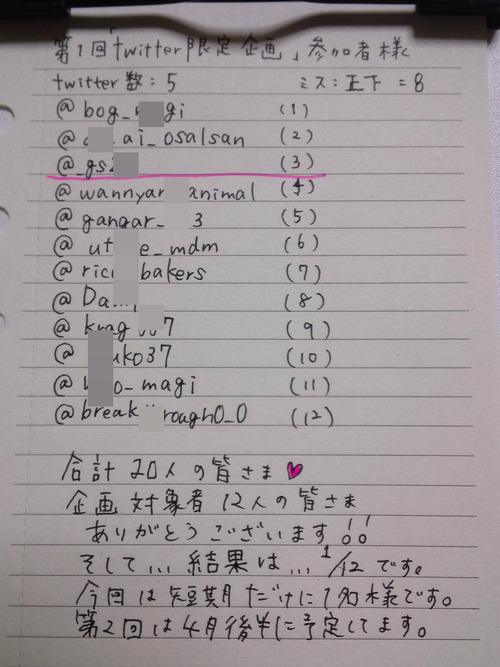 第1回「twitter限定企画」参加者様
twitter数：5 ミス：正下 =8
@ bog_ gi (1)
@ ai_osalsan (2)
@_gs (3)
@ wannyar animal (4)
@ gangar_ 3 (5)
@ ut e_mdm (6)
@ ric bakers (7)
@ Da (8)
@ kmag 7 (9)
@ uko37 (10)
@ o_magi (11)
@ break rough0_0 (12)
合計 20人の皆さま♥
企画対象者 12人の皆さま
ありがとうございます!!
そして...結果は...1/12です。
今回は短期だけに1名様です。
第2回は4月後半に予定してます。